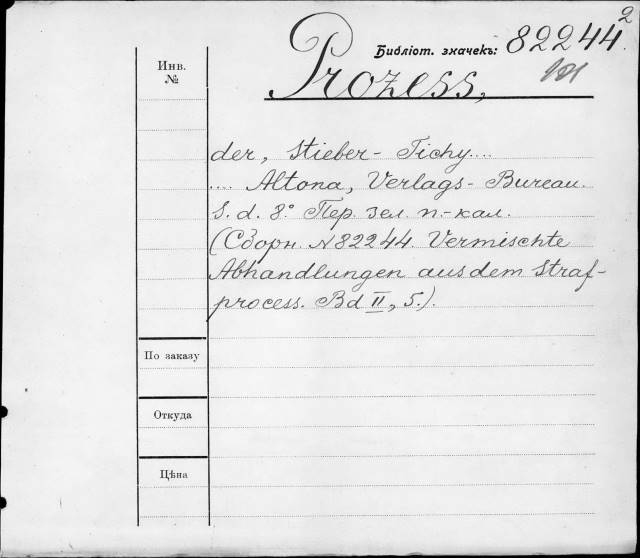 2
Библіот. значекъ: 82244
Prozess,
Инв.
№
der, Stieber-Tichy....
.... Altona, Verlags-Bureau.
S. d. 8.° Пер. зел. п-кал.
(Сборн. N 82244. Vermischte
Abhandlungen aus dem Straf-
process. Bd II, 5.).
По заказу
Откуда
Цѣна